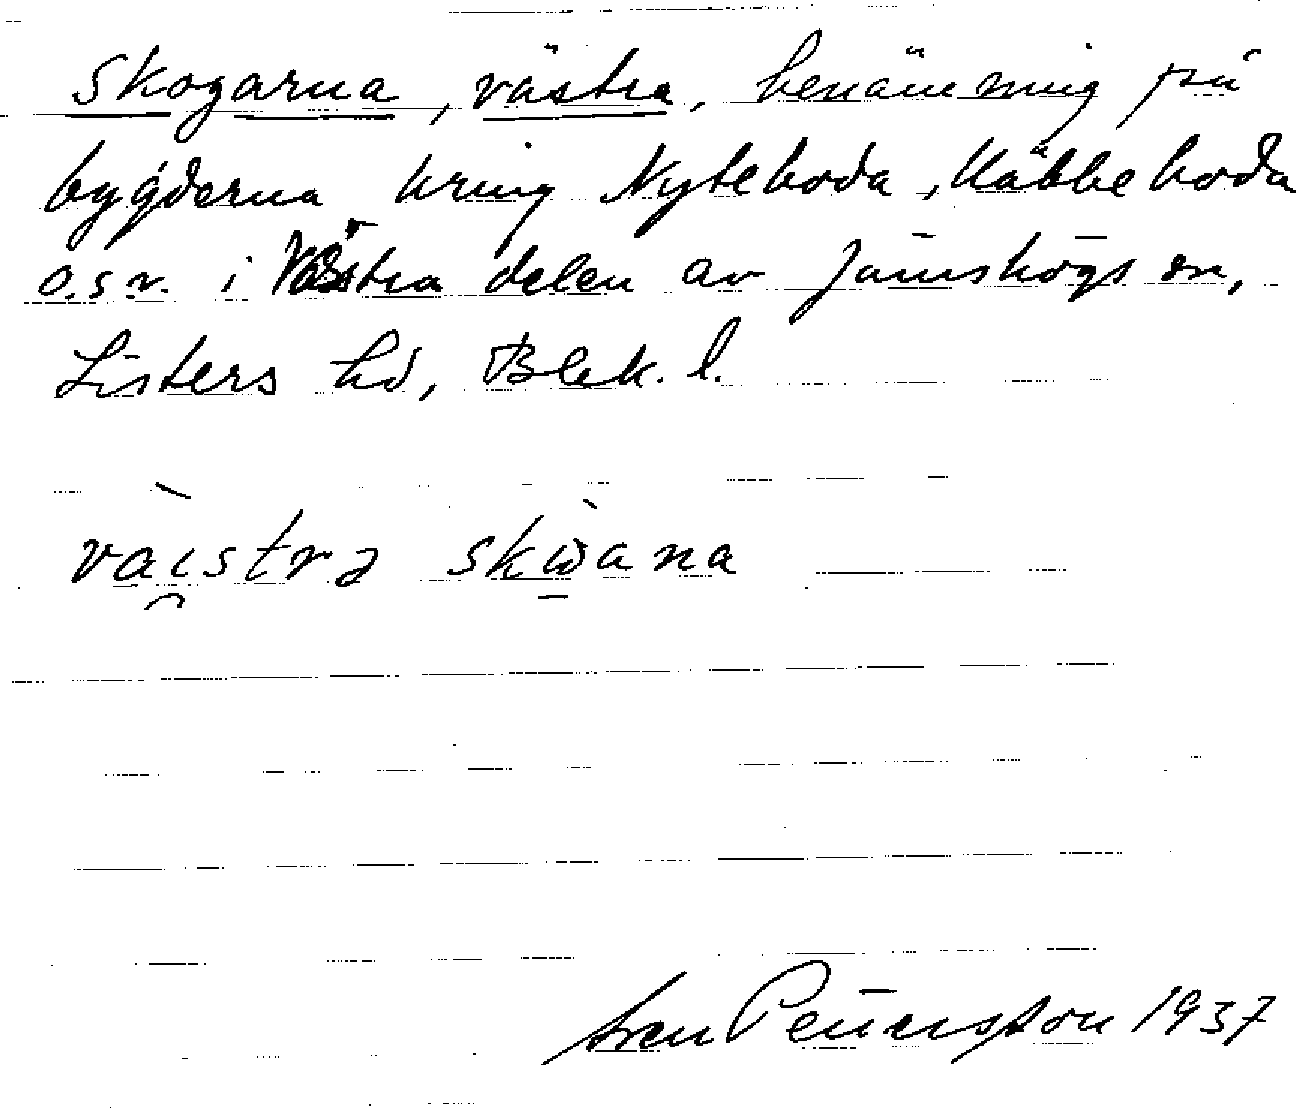 Skogarna, västra, benämning på
bygderna kring Nyteboda, Käbbeboda
o.s.v. i västra delen av Jämshögs sn,
Listers hd, Blek. l.
västra skωana
Sven Pettersson 1937